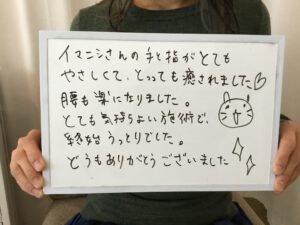 イマニシさんの手と指がとても
やさしくて、とっても癒されました♡
腰も楽になりました。
とても気持ちよい施術で、
終始うっとりでした。
どうもありがとうございました